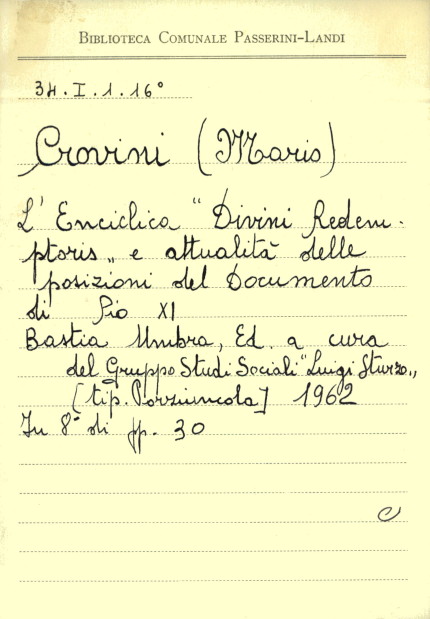 BIBLIOTECA COMUNALE PASSERINI-LANDI
3H.I.1.16°
Crovini (Mario)
L'Enciclica "Divini Redem-
ptoris„ e attualità delle
posizioni del Documento
di Pio XI
Bastia Umbra, Ed. a cura
del Gruppo Studi Sociali "Luigi Sturzo„,
[tip. Porziuncola] 1962
In 8° di pp. 30
C